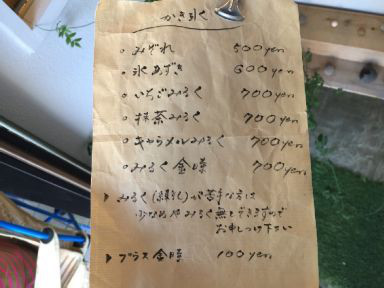 かき氷
○ みぞれ 500yen
○ 氷あずき 600yen
○ いちごみるく 700yen
○ 抹茶みるく 700yen
○ キャラメルみるく 700yen
○ みるく金時 700yen
▶ みるく(練乳)が苦手な方は
少なめやみるく無しできますので
お申しつけ下さい
▶ プラス金時 100yen